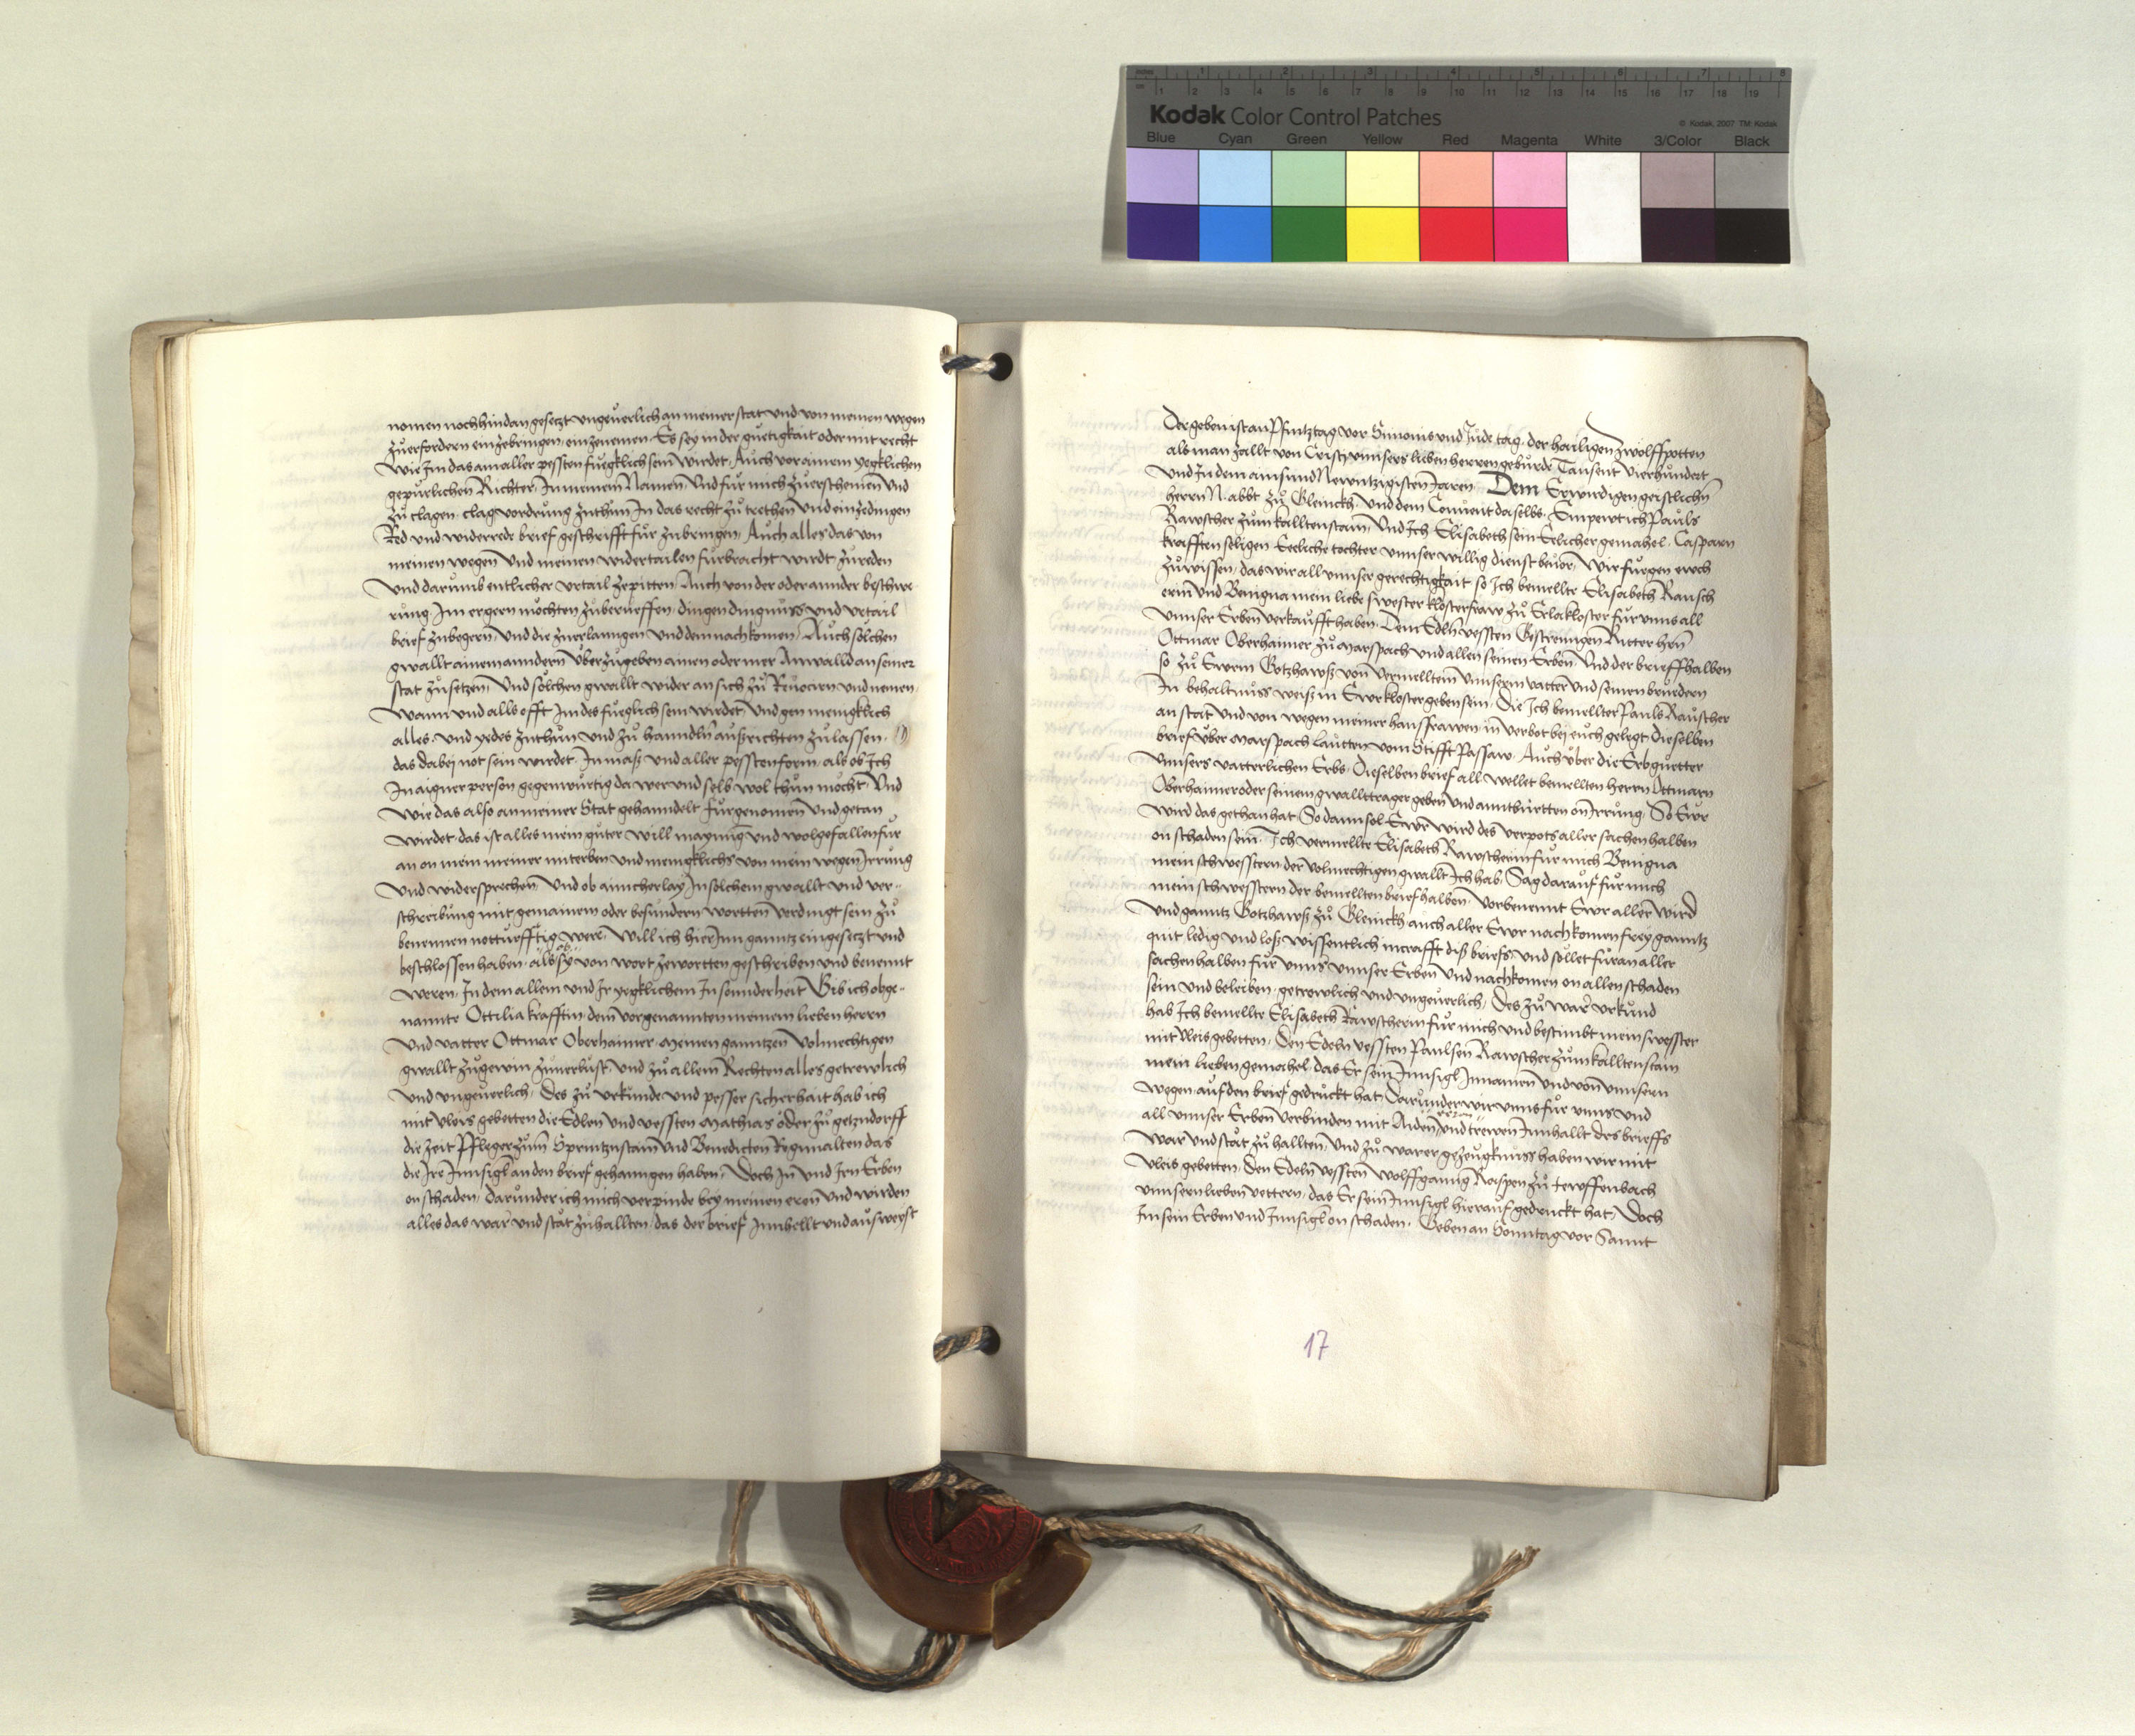 inches 1 2 3 4 5 6 7 8
cm 1 2 3 4 5 6 7 8 9 10 11 12 13 14 15 16 17 18 19
Kodak Color Control Patches
© Kodak, 2007 TM: Kodak
Blue Cyan Green Yellow Red Magenta White 3/Color Black
nomen noch hindan gesetzt ungeuerlich an meiner stat und von meinen wegen
zůerfordern einzebringen, einzenemen, Es sey in der guetigkait oder mit recht
wie Im das am aller pessten fuegklich sein wirdet, Auch vor ainem yegklichen
gepurlichen Richter, In meinem Namen, Und fur mich zůerscheinen Und
zů clagen, clag vordrung zuthun In das recht zů trethen und einzedingen
Red und widerrede brief geschrifft fur zubringen, Auch alles das von
meinen wegen und meinen widertailen furbracht wirdt zureden
und darumb entlicher urtail zepitten, Auch von der oder annder beschwe
rung Im ergern mochten zuberueffen, dingen dingnuss und urtail
brief zubegern, Und die zuerlanngen und dem nachkomen, Auch solchen
gwallt ainem anndern uber zugeben ainen oder mer Anwalld an seiner
stat zůsetzen, Und solchen gwallt wider an sich zů Reuociern und nemen
wann und alls offt Im des fueglich sein wirdet, und gen menigklich
alles, und yedes zuthůn und zů hanndln aussrichten zulassen,
das dabej not sein wirdet, In mass und aller pessten form, als ob Ich
In aigner person gegenwurtig da wer und selb wol thun mocht, Und
wie das also an meiner Stat gehanndelt furgenomen Und getan
wirdet, das ist alles mein guter will maynung und wolgefallen fur
an on mein meiner miterben und menigklichs von mein wegen Irrung
und widersprechen, Und ob ainicherlay In solchem gwallt und ver-
schreibung mit gemainem oder besundern wortten verdingt sein zů
benennen notturfftig were, will ich hierInn ganntz eingesetzt und
beschlossen haben, als ob sy von wort zewortten geschriben und benennt
weren, In dem allem und Ir yegklichem In sonnderheit Gib ich obge-
nannte Ottilia krafftin dem vorgenannten meinem lieben herrn
und vatter Ottmar Oberhaimer meinen ganntzen volmechtigen
gwallt zugewin zuuerlust, und zů allem Rechten alles getrewlich
und ungeuerlich, Des zů urkunde und pesser sicherhait hab ich
mit vleis gebetten die Edlen und vessten Mathias oder zů getzndorff
die zeit Pfleger zum Sprintznstain und Benedicten Reginalten das
die Ire Innsigl an den brief gehanngen haben, Doch In und Irn Erben
on schaden, darunder ich mich verpinde bey meinen eren und wirden
alles das war und stat zuhallten, das der brief Innhellt und ausweyst
Der geben ist an Pfintztag vor Simonis und Jude tag, der hailigen zwolffpotten
als man zallt von Cristj unnsers lieben herren geburde Tausent Vierhundert
und In dem ainsund Newntzigisten Jaren Dem Erwirdigen geistlichn
herrn N. abbt zů Gleinckh, und dem Conuent daselbs, Empewt ich Pauls
Rawscher zum kalltenstain, Und Ich Elisabeth sein Eelicher gemahel, Casparn
krafften seligen Eeliche tochter unnser willig dienst beuor, Wir fůrgen ewch
zůwissen, das wir all unnser gerechtigkait so Ich bemellte Elisabeth Rausch
erin und Benigna mein liebe swester klosterfraw zů Erlakloster fur unns all
unnser Erben verkaufft haben, Dem Edln vessten Gestrenngen Ritter hrn
Ottmar Oberhaimer zů Marspach und allen seinen Erben, Und der brieff halben
so zů Ewrm Gotzhawss von vermelltem unnserm vatter und seinen brudern
In behaltnuss weiss in Ewr kloster geben sein, Die Ich bemellter Pauls Rauscher
an stat und von wegen meiner hausfrawen in verbot bej euch gelegt, Dieselben
brief uber Marspach lautten vom Stifft Passaw, Auch uber die Erbguetter
Unnsers vatterlichen Erbs, Dieselben brief all wellet bemellten herrn Ottmarn
Oberhaimer oder seinem gwallttrager geben und anntburtten on Irrung, So Ewr
wird das gethan hat, So dann sol Ewr wird des verpots aller sachen halben
on schaden sein, Ich vermellte Elisabeth Rawscherin fur mich Benigna
mein schwesstern der volmechtigen gwallt Ich hab, Sag darauf fur mich
mein schwesstern der bemellten brief halben, Vorbenennt Ewr aller wird
und ganntz Gotzhawss zů Gleinckh auch aller Ewr nachkomen frey ganntz
quit ledig und loss wissentlich incrafft diss briefs, und sollet furan aller
sachen halben fur unns unnser Erben Und nachkomen on allen schaden
sein und beleiben, getrewlich und ungeuerlich, Des zů warer urkund
hab Ich bemellte Elisabeth Rawscherin fur mich und bestimbt mein swesster
mit vleis gebetten, Den Edeln vessten Paulsen Rawscher zum kalltenstain
mein lieben gemahel, das Er sein Innsigl Innamen und von unnsern
wegen auf den brief gedruckt hat, Darunder wir unns fur unns und
all unnser Erben verbinden mit Aiden und trewen Innhallt des brieffs
war und stat zů hallten, Und zů warer gezeugknuss haben wir mit
vleis gebetten, Den Edeln vessten Wolffganng Raspen zů tewffenbach
unnsern lieben vettern, das Er sein Innsigl hierauf gedruckt hat, Doch
Im sein Erben und Innsigl on schaden, Geben an Sonntag vor Sannt
17